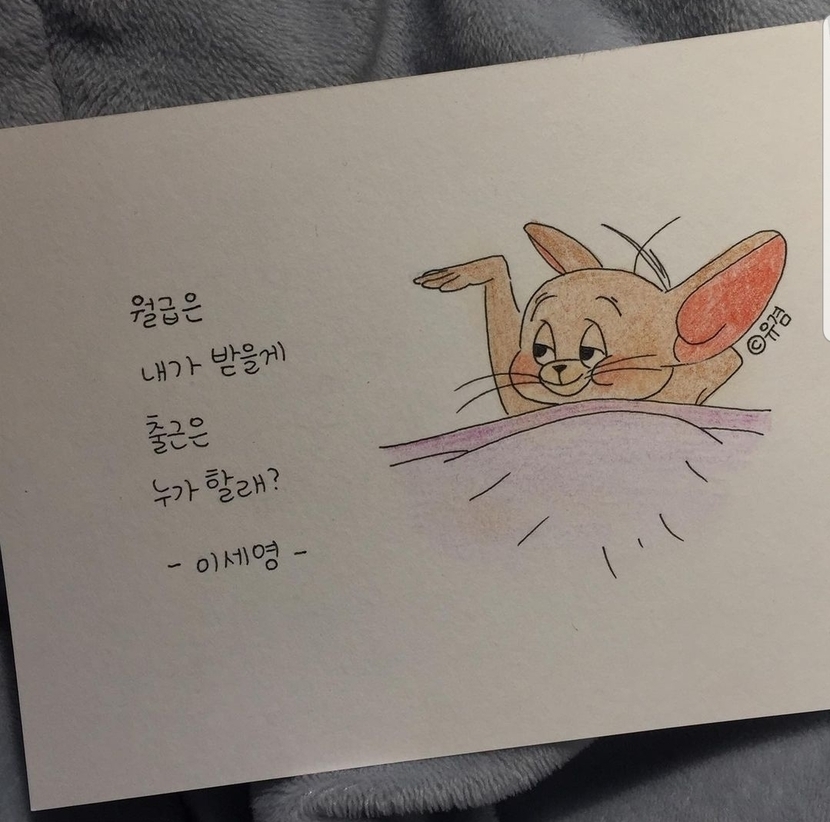 월급은
내가 받을게
출근은
누가 할래?
- 이세영 -
©유겸